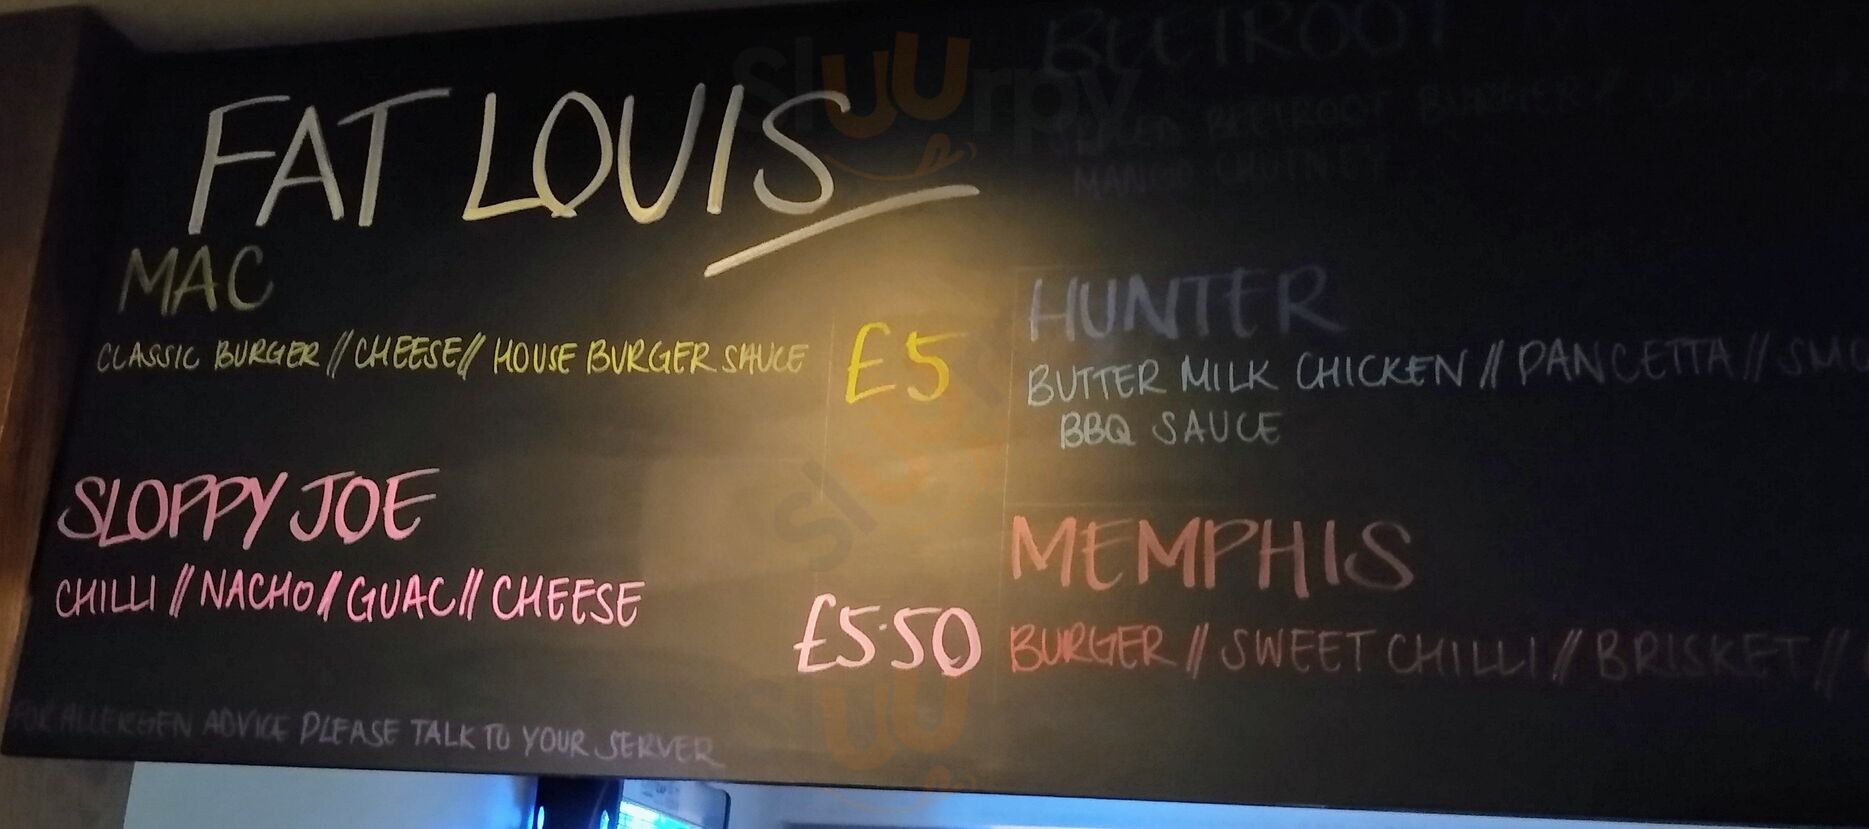 FAT LOUIS
MAC
CLASSIC BURGER // CHEESE // HOUSE BURGER SAUCE
£5
SLOPPY JOE
CHILLI // NACHO // GUAC // CHEESE
£5.50
FOR ALLERGEN ADVICE PLEASE TALK TO YOUR SERVER
BEETROOT
SPICED BEETROOT BURGER //
MANGO CHUTNEY
HUNTER
BUTTER MILK CHICKEN // PANCETTA //
BBQ SAUCE
MEMPHIS
BURGER // SWEET CHILLI // BRISKET //
sluurpy